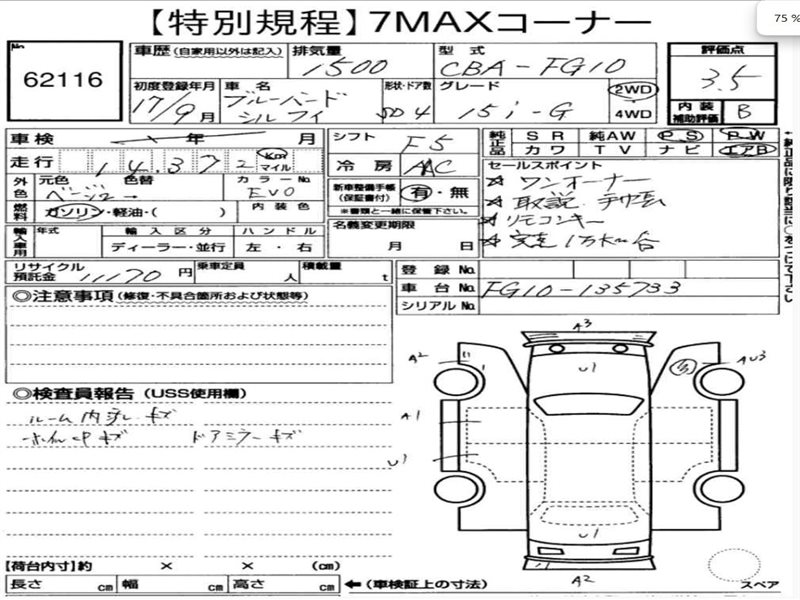 【特別規程】7MAXコーナー
75 %
No 62116
車歴(自家用以外は記入) 排気量 1500
型式 CBA-FG10
評価点 3.5
初度登録年月 17/9月
車名 ブルーバード シルフィ
形状・ドア数 SD 4
グレード 15i-G
2WD 4WD
内装補助評価 B
車検 年 月
シフト F5
純正品 SR 純AW PS PW
カワ TV ナビ エアB
走行 14.372 Km マイル
冷房 AAC
外色 元色 ベージュ 色替 カラーNo EV0
新車整備手帳(保証書付) 有・無
※書類と一緒に保管下さい。
セールスポイント
☆ ワンオーナー
☆ 取説 手帳
☆ リモコンキー
☆ 実走1万km台
燃料 ガソリン・軽油・( ) 内装色
名義変更期限 月 日
輸入車用 年式 輸入区分 ハンドル
ディーラー・並行 左・右
リサイクル預託金 11170 円 乗車定員 人 積載量 t
登録No.
車台No. FG10-135733
シリアルNo.
◎注意事項(修復・不具合箇所および状態等)
◎検査員報告(USS使用欄)
ルーム内 汚レ キズ
キズ ドアミラーキズ
A3
A2
U1
AU3
A1
U1
U1
A2
スペア
【荷台内寸】約 × × (cm)
長さ cm 幅 cm 高さ cm ←(車検証上の寸法)